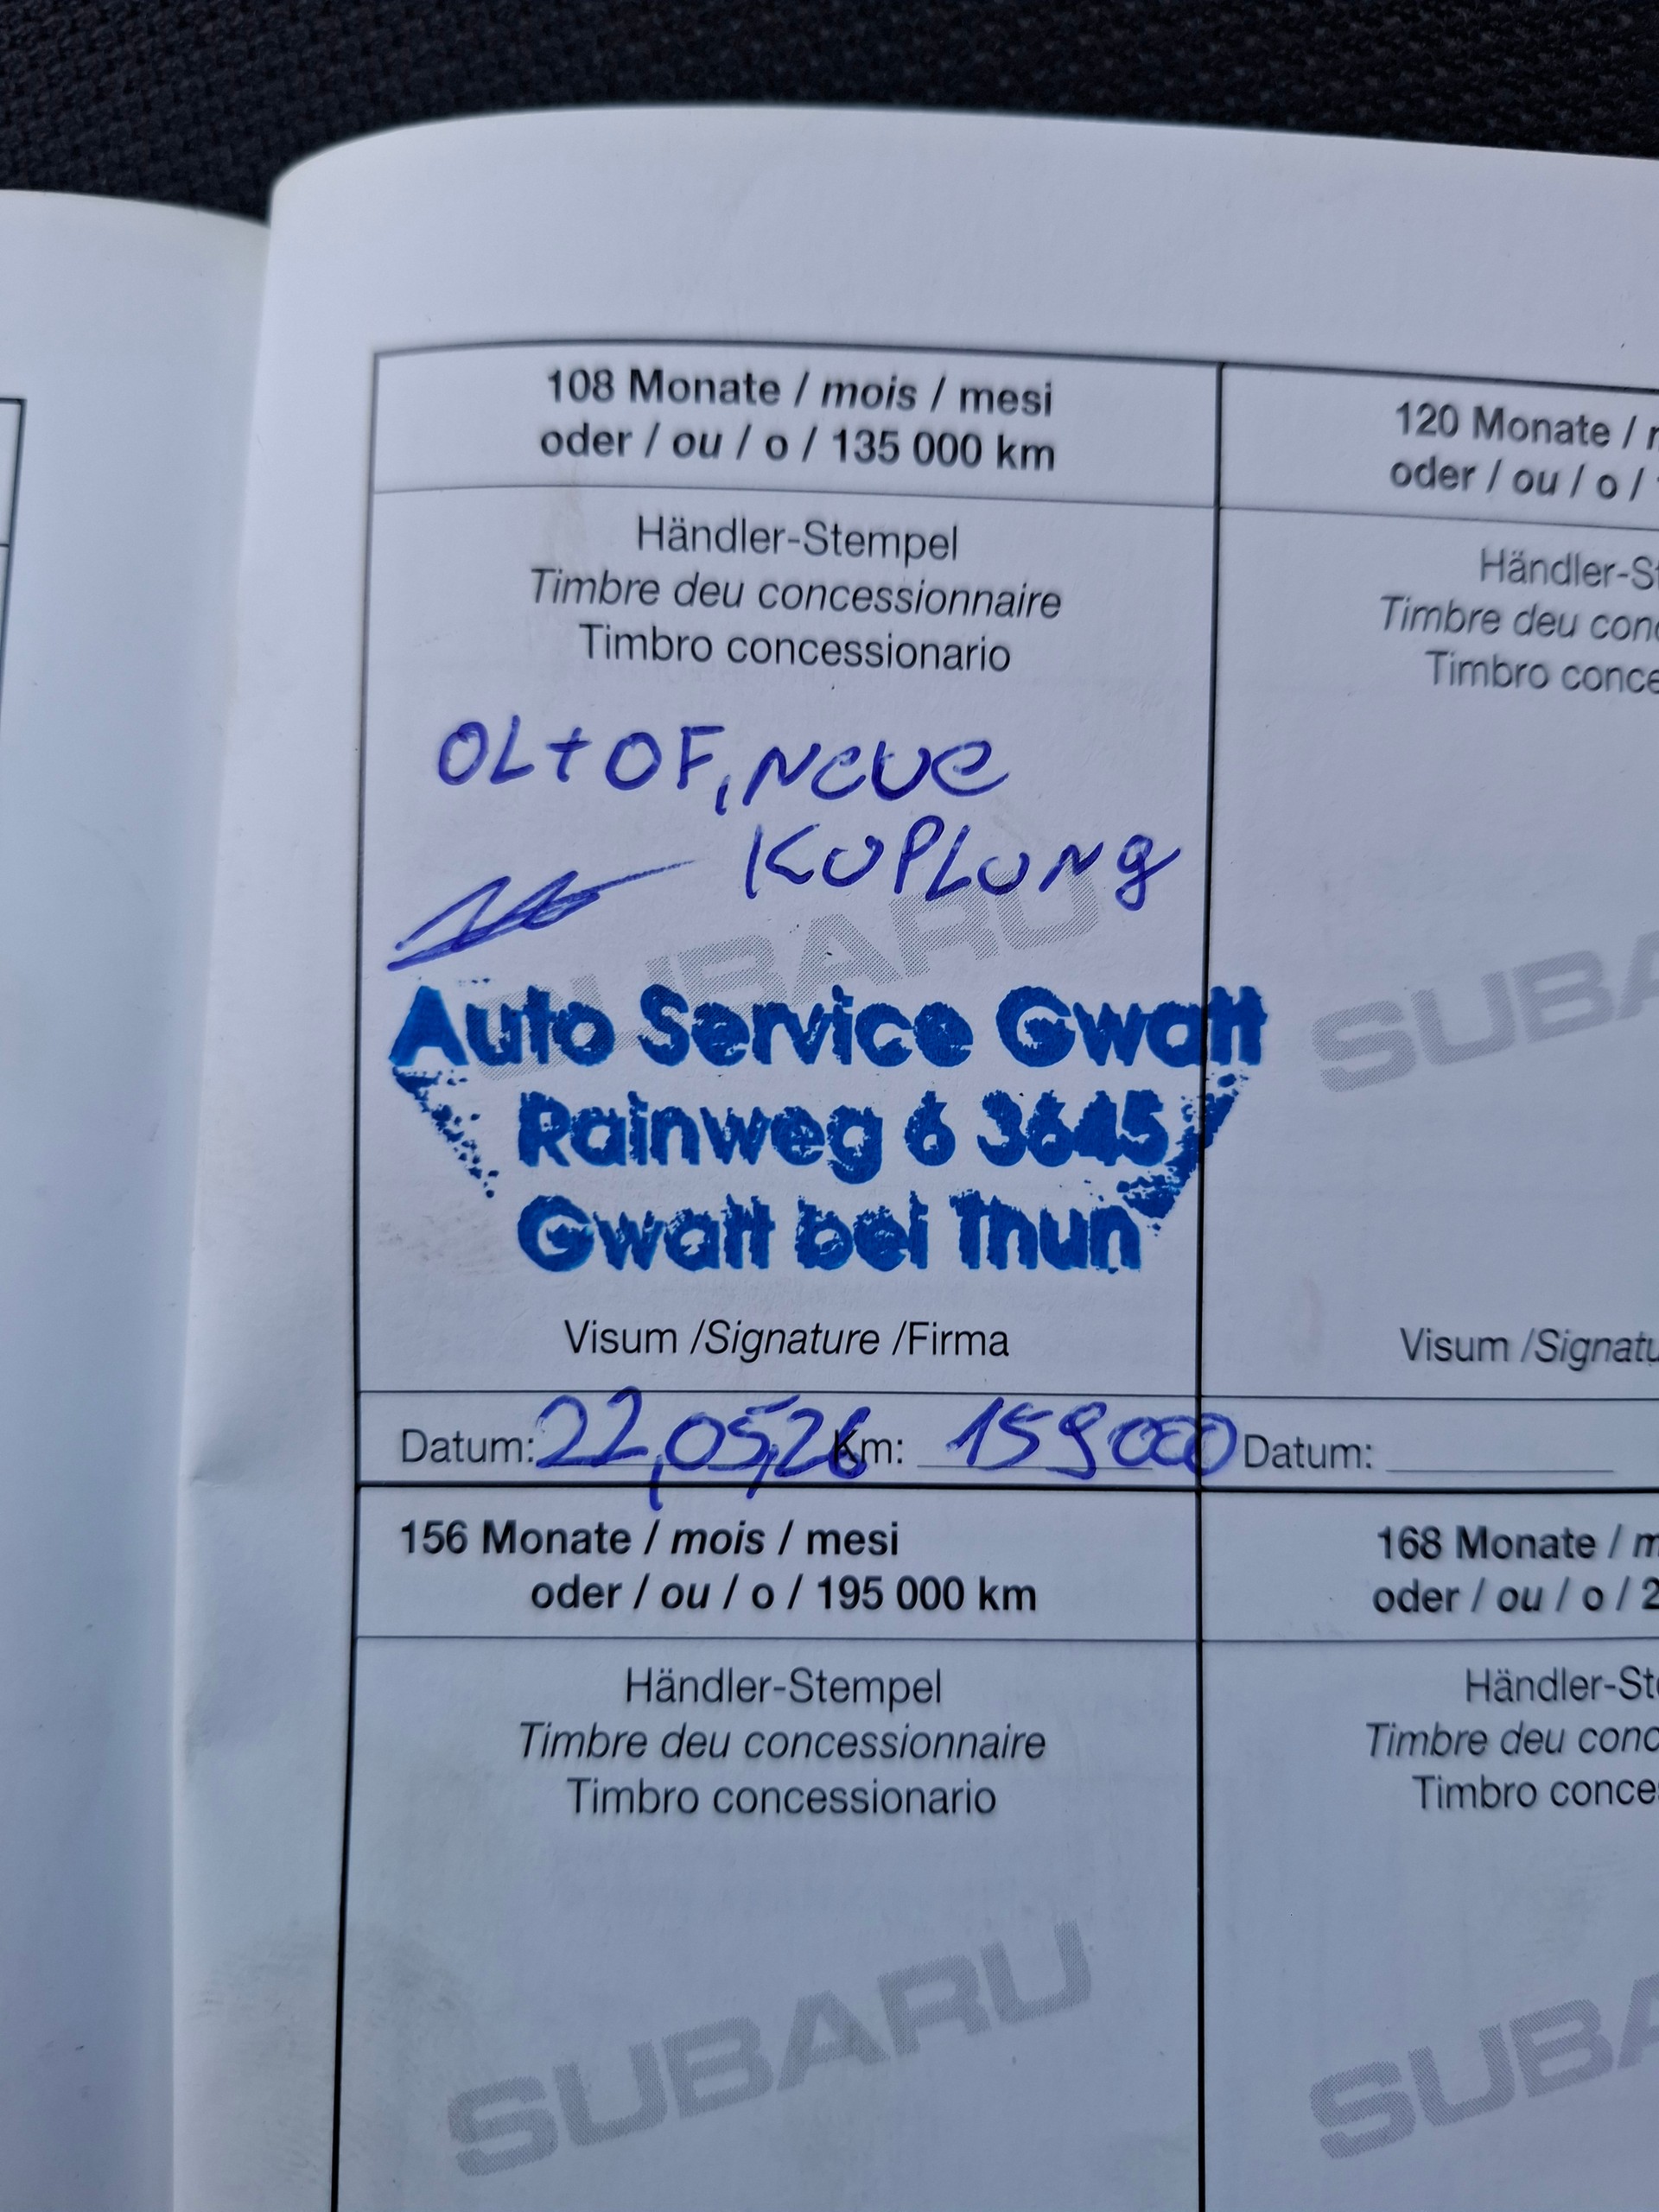 108 Monate / mois / mesi
oder / ou / o / 135 000 km
Händler-Stempel
Timbre deu concessionnaire
Timbro concessionario
OL+OF, Neue
KUPLUNG
SUBARU
Auto Service Gwatt
Rainweg 6 3645
Gwatt bei Thun
Visum /Signature /Firma
Datum: 22,05,26 Km: 159000
120 Monate /
oder / ou / o /
Händler-St
Timbre deu conc
Timbro conce
SUBA
Visum /Signatu
Datum:
156 Monate / mois / mesi
oder / ou / o / 195 000 km
Händler-Stempel
Timbre deu concessionnaire
Timbro concessionario
SUBARU
168 Monate / m
oder / ou / o / 2
Händler-Ste
Timbre deu conc
Timbro conce
SUBA